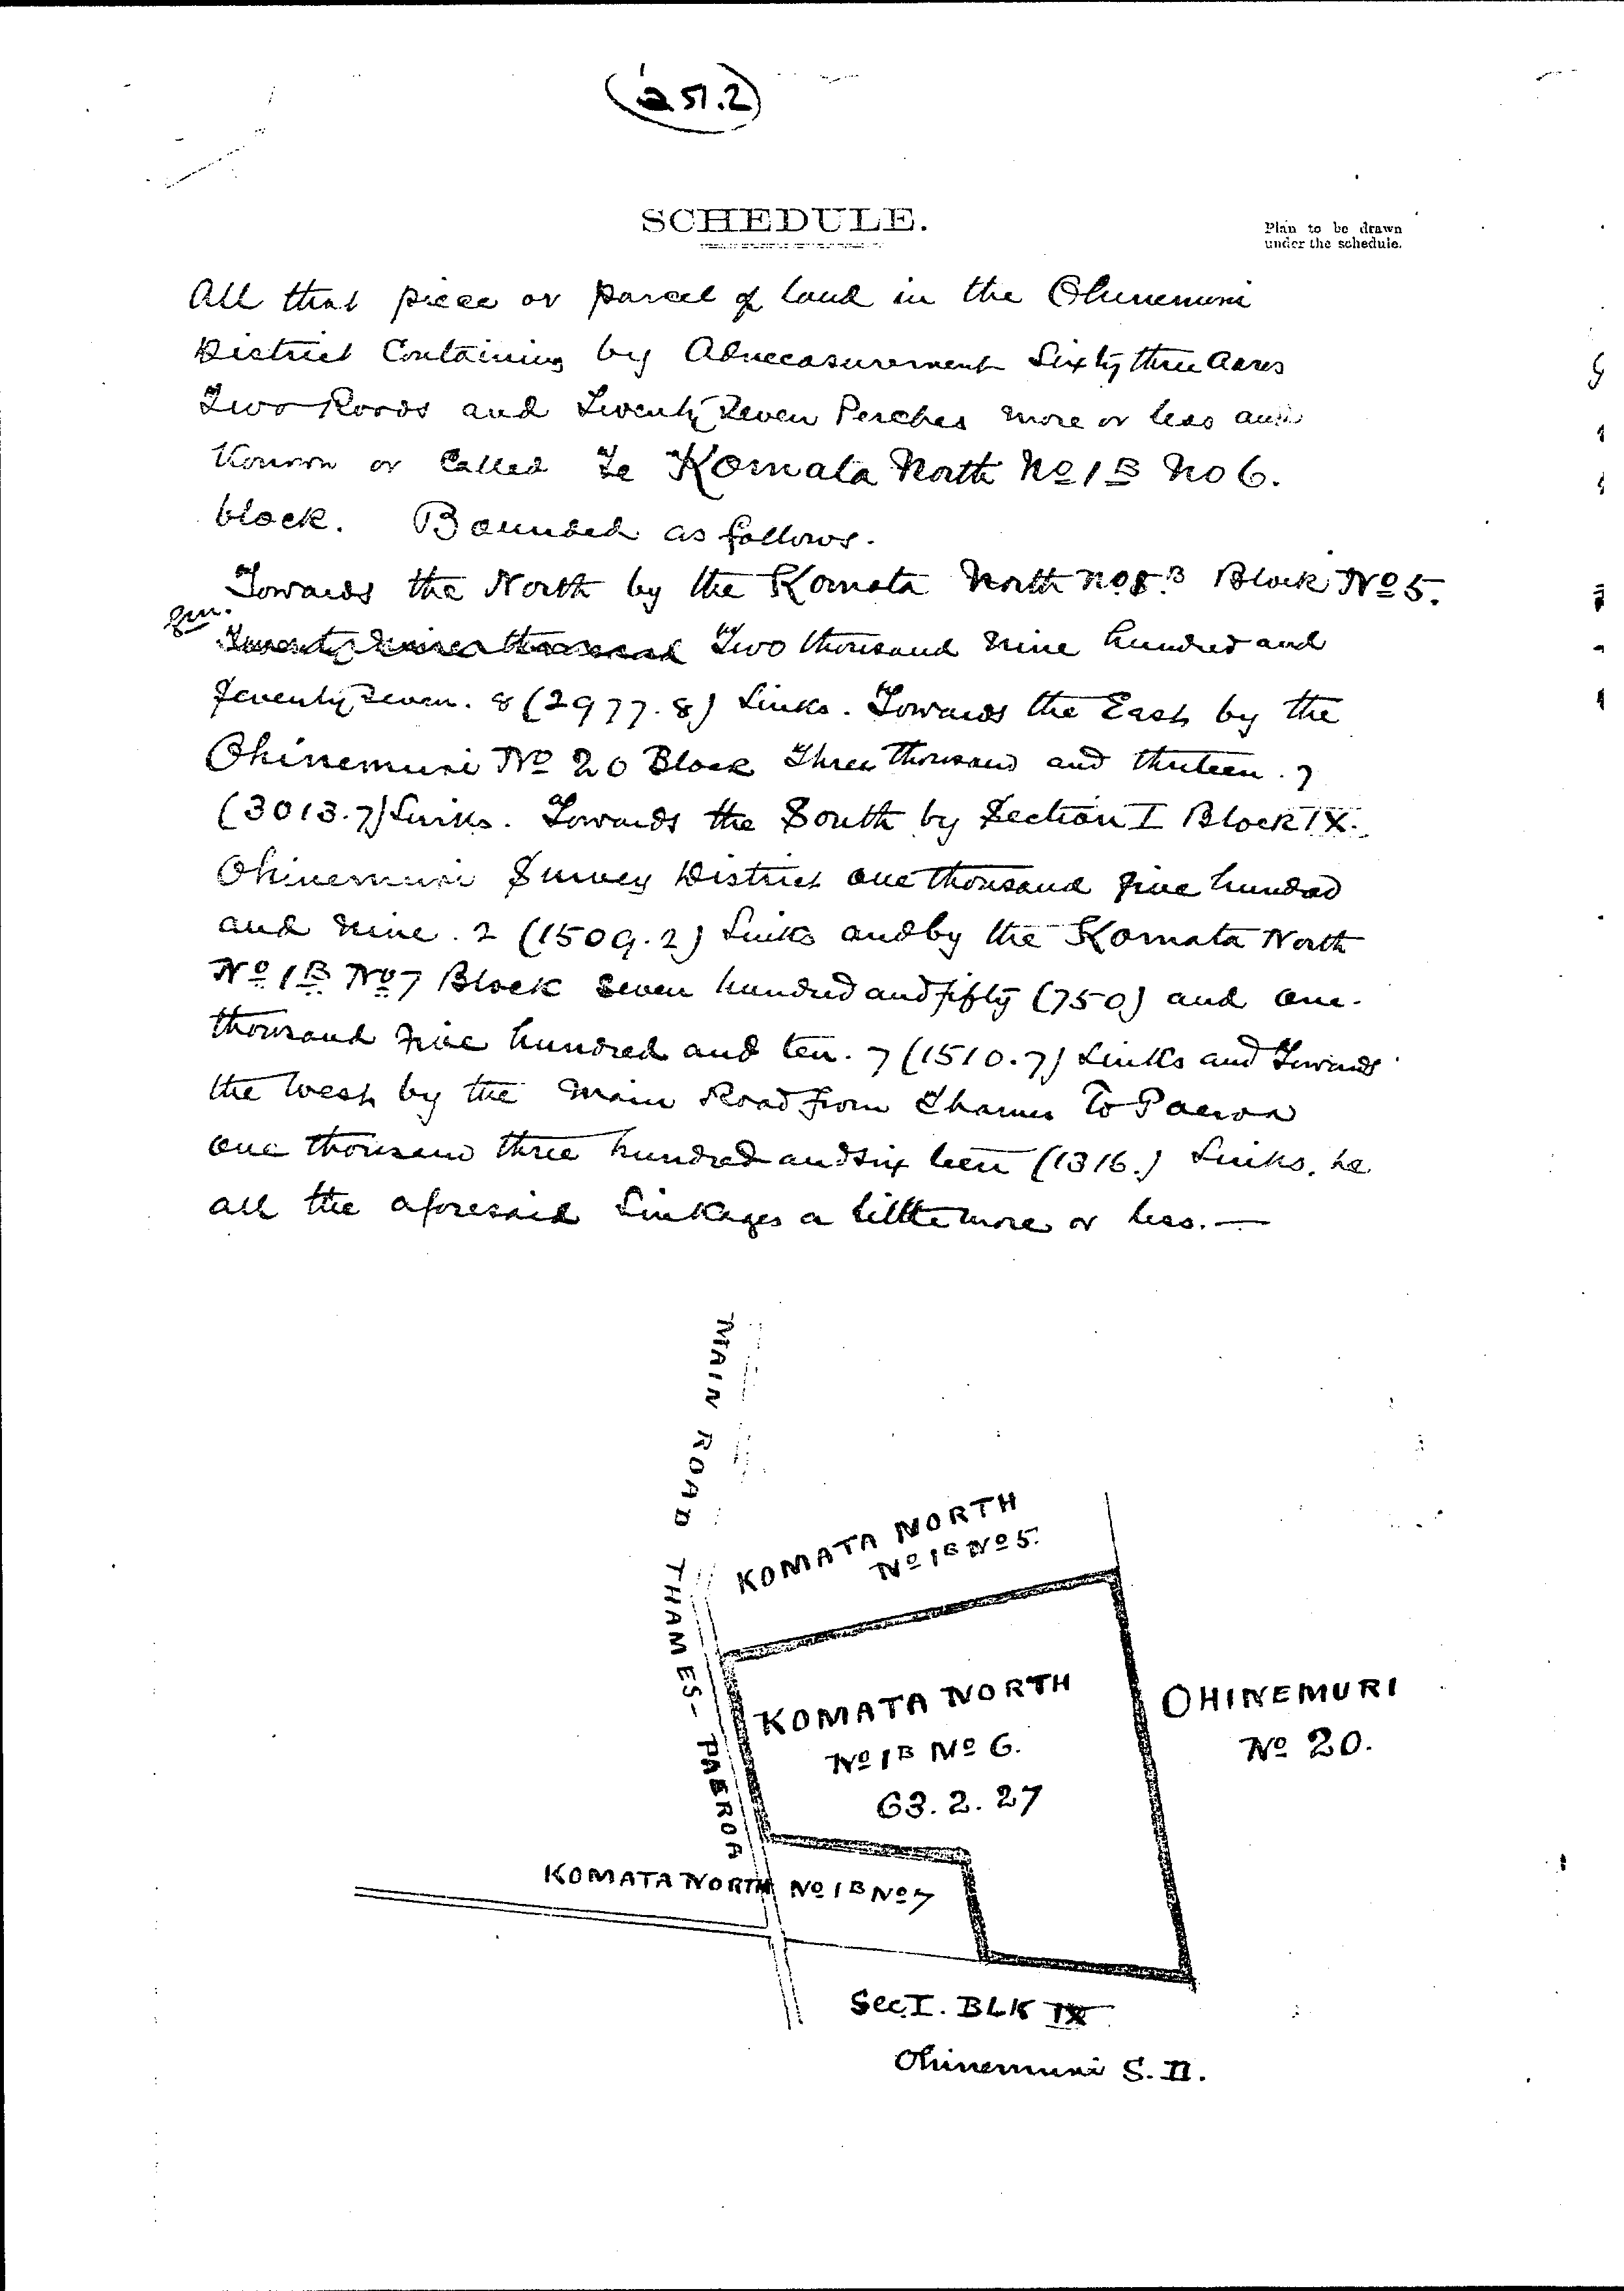 (251.2)
SCHEDULE.
Plan to be drawn
under the schedule.
All that piece or parcel of land in the Ohinemuri
District Containing by Admeasurement Sixty three Acres
Two Roods and Twenty Seven Perches more or less and
Known or Called Te Komata North No 1B No 6.
block. Bounded as follows.
Towards the North by the Komata North No 1B Block No 5.
Two thousand nine hundred and
Seventy Seven. 8 (2977.8) Links. Towards the East by the
Ohinemuri No 20 Block Three thousand and thirteen. 7
(3013.7) Links. Towards the South by Section I Block IX.
Ohinemuri Survey District one thousand five hundred
and nine. 2 (1509.2) Links and by the Komata North
No 1B No 7 Block Seven hundred and fifty (750) and one
thousand five hundred and ten. 7 (1510.7) Links and Towards
the West by the Main Road from Thames To Paeroa
one thousand three hundred and six teen (1316.) Links. be
all the aforesaid Linkages a little more or less. —
MAIN ROAD THAMES - PAEROA
KOMATA NORTH
No 1B No 5.
KOMATA NORTH
No 1B No 6.
63. 2. 27
OHINEMURI
No 20.
KOMATA NORTH No 1B No 7
Sec I. BLK IX
Ohinemuri S. D.